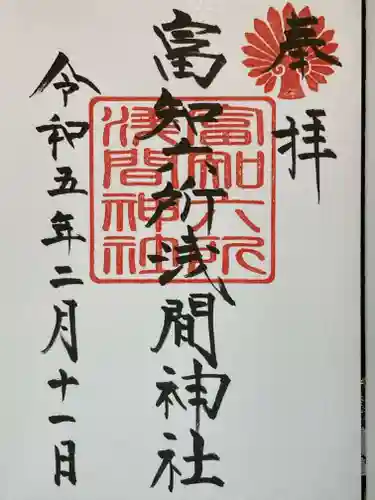 奉拝
富知六所浅間神社
富知六所
浅間神社
令和五年二月十一日